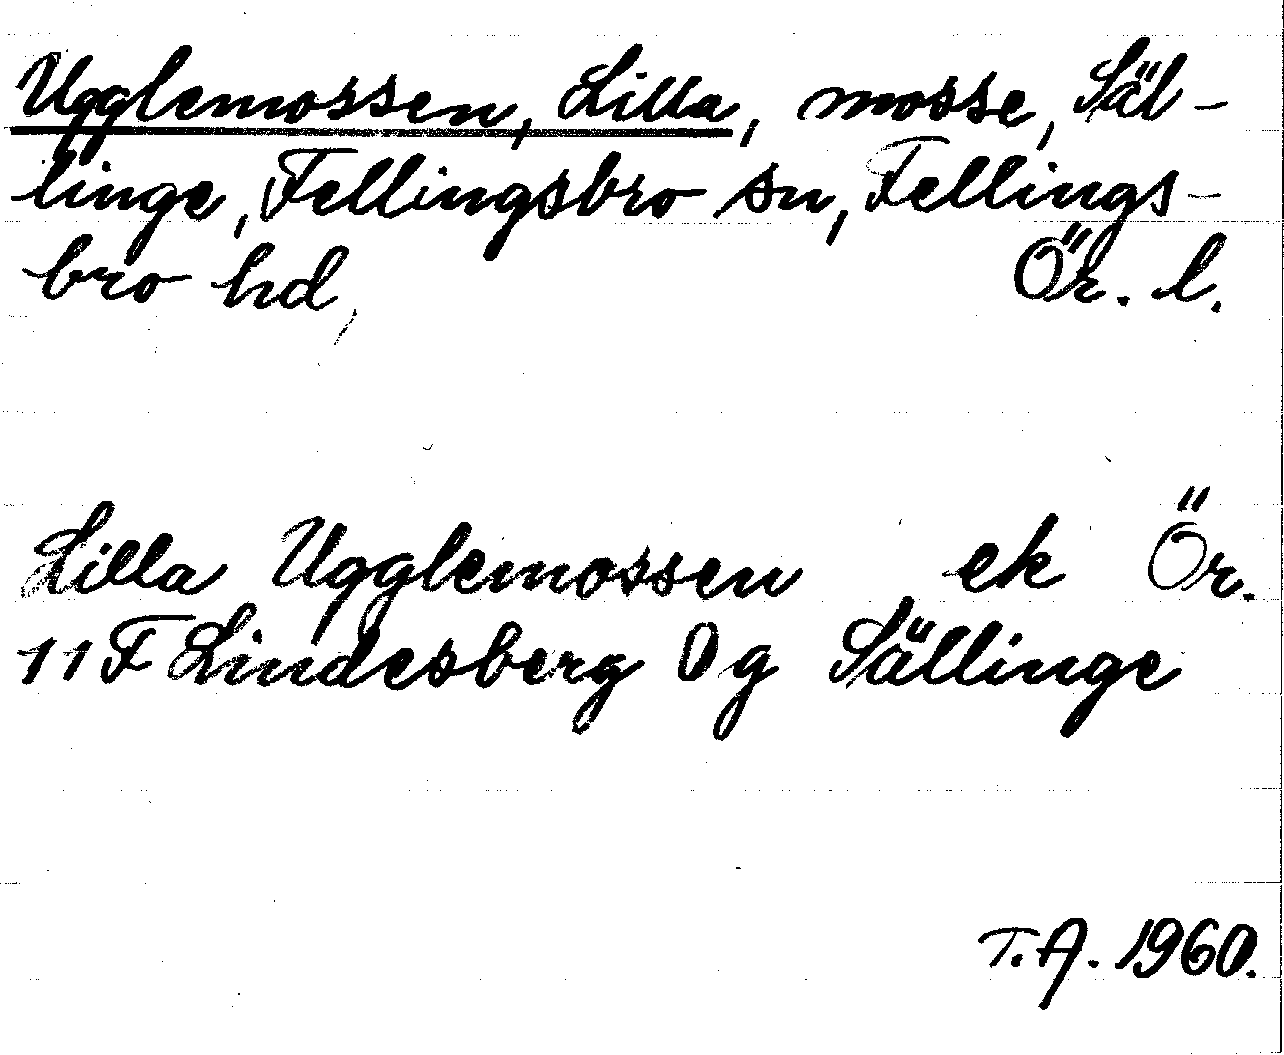 Ugglemossen, Lilla, mosse, Säl-
linge, Fellingsbro sn, Fellings-
bro hd, Ör. l.
Lilla Ugglemossen ek Ör.
11 F Lindesberg 0 g Sällinge
T.A. 1960.